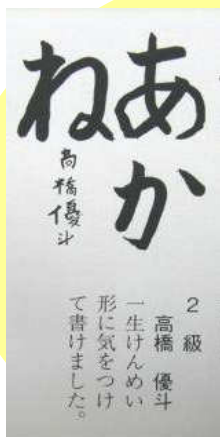 あか
ね
高橋優斗
2級
高橋 優斗
一生けんめい
形に気をつけ
て書けました。